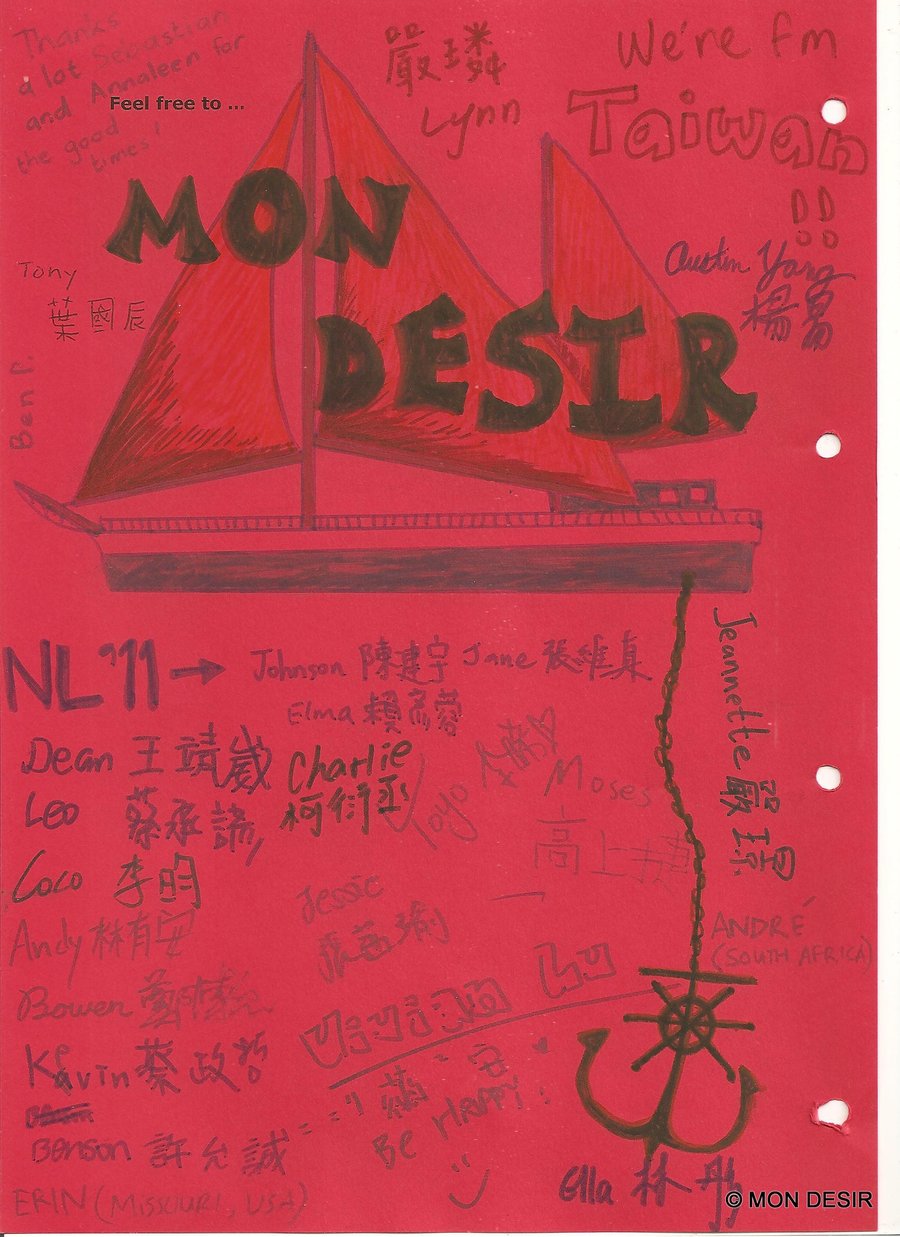 Thanks
a lot Sebastian
and Annaleen for
the good
times!
Feel free to ...
嚴璘
Lynn
We're fm
Taiwan
!!
MON
DESIR
Austin Yang
楊
Tony
葉國辰
Ben P.
NL '11 → Johnson 陳建宇 Jane 張維真
Elma 賴彥蓉
Dean 王靖崴
Charlie
柯衍丞
Leo 蔡承諺
Coco 李昀
Yoyo
Moses
高上捷
Jeannette 嚴琼
Andy 林有安
Jessie
ANDRÉ
(SOUTH AFRICA)
Bowen
Vivian Lu
Kevin 蔡政哲
BE HAPPY!
Benson 許允誠
Ella 林彤
ERIN (MISSOURI, USA)
© MON DESIR